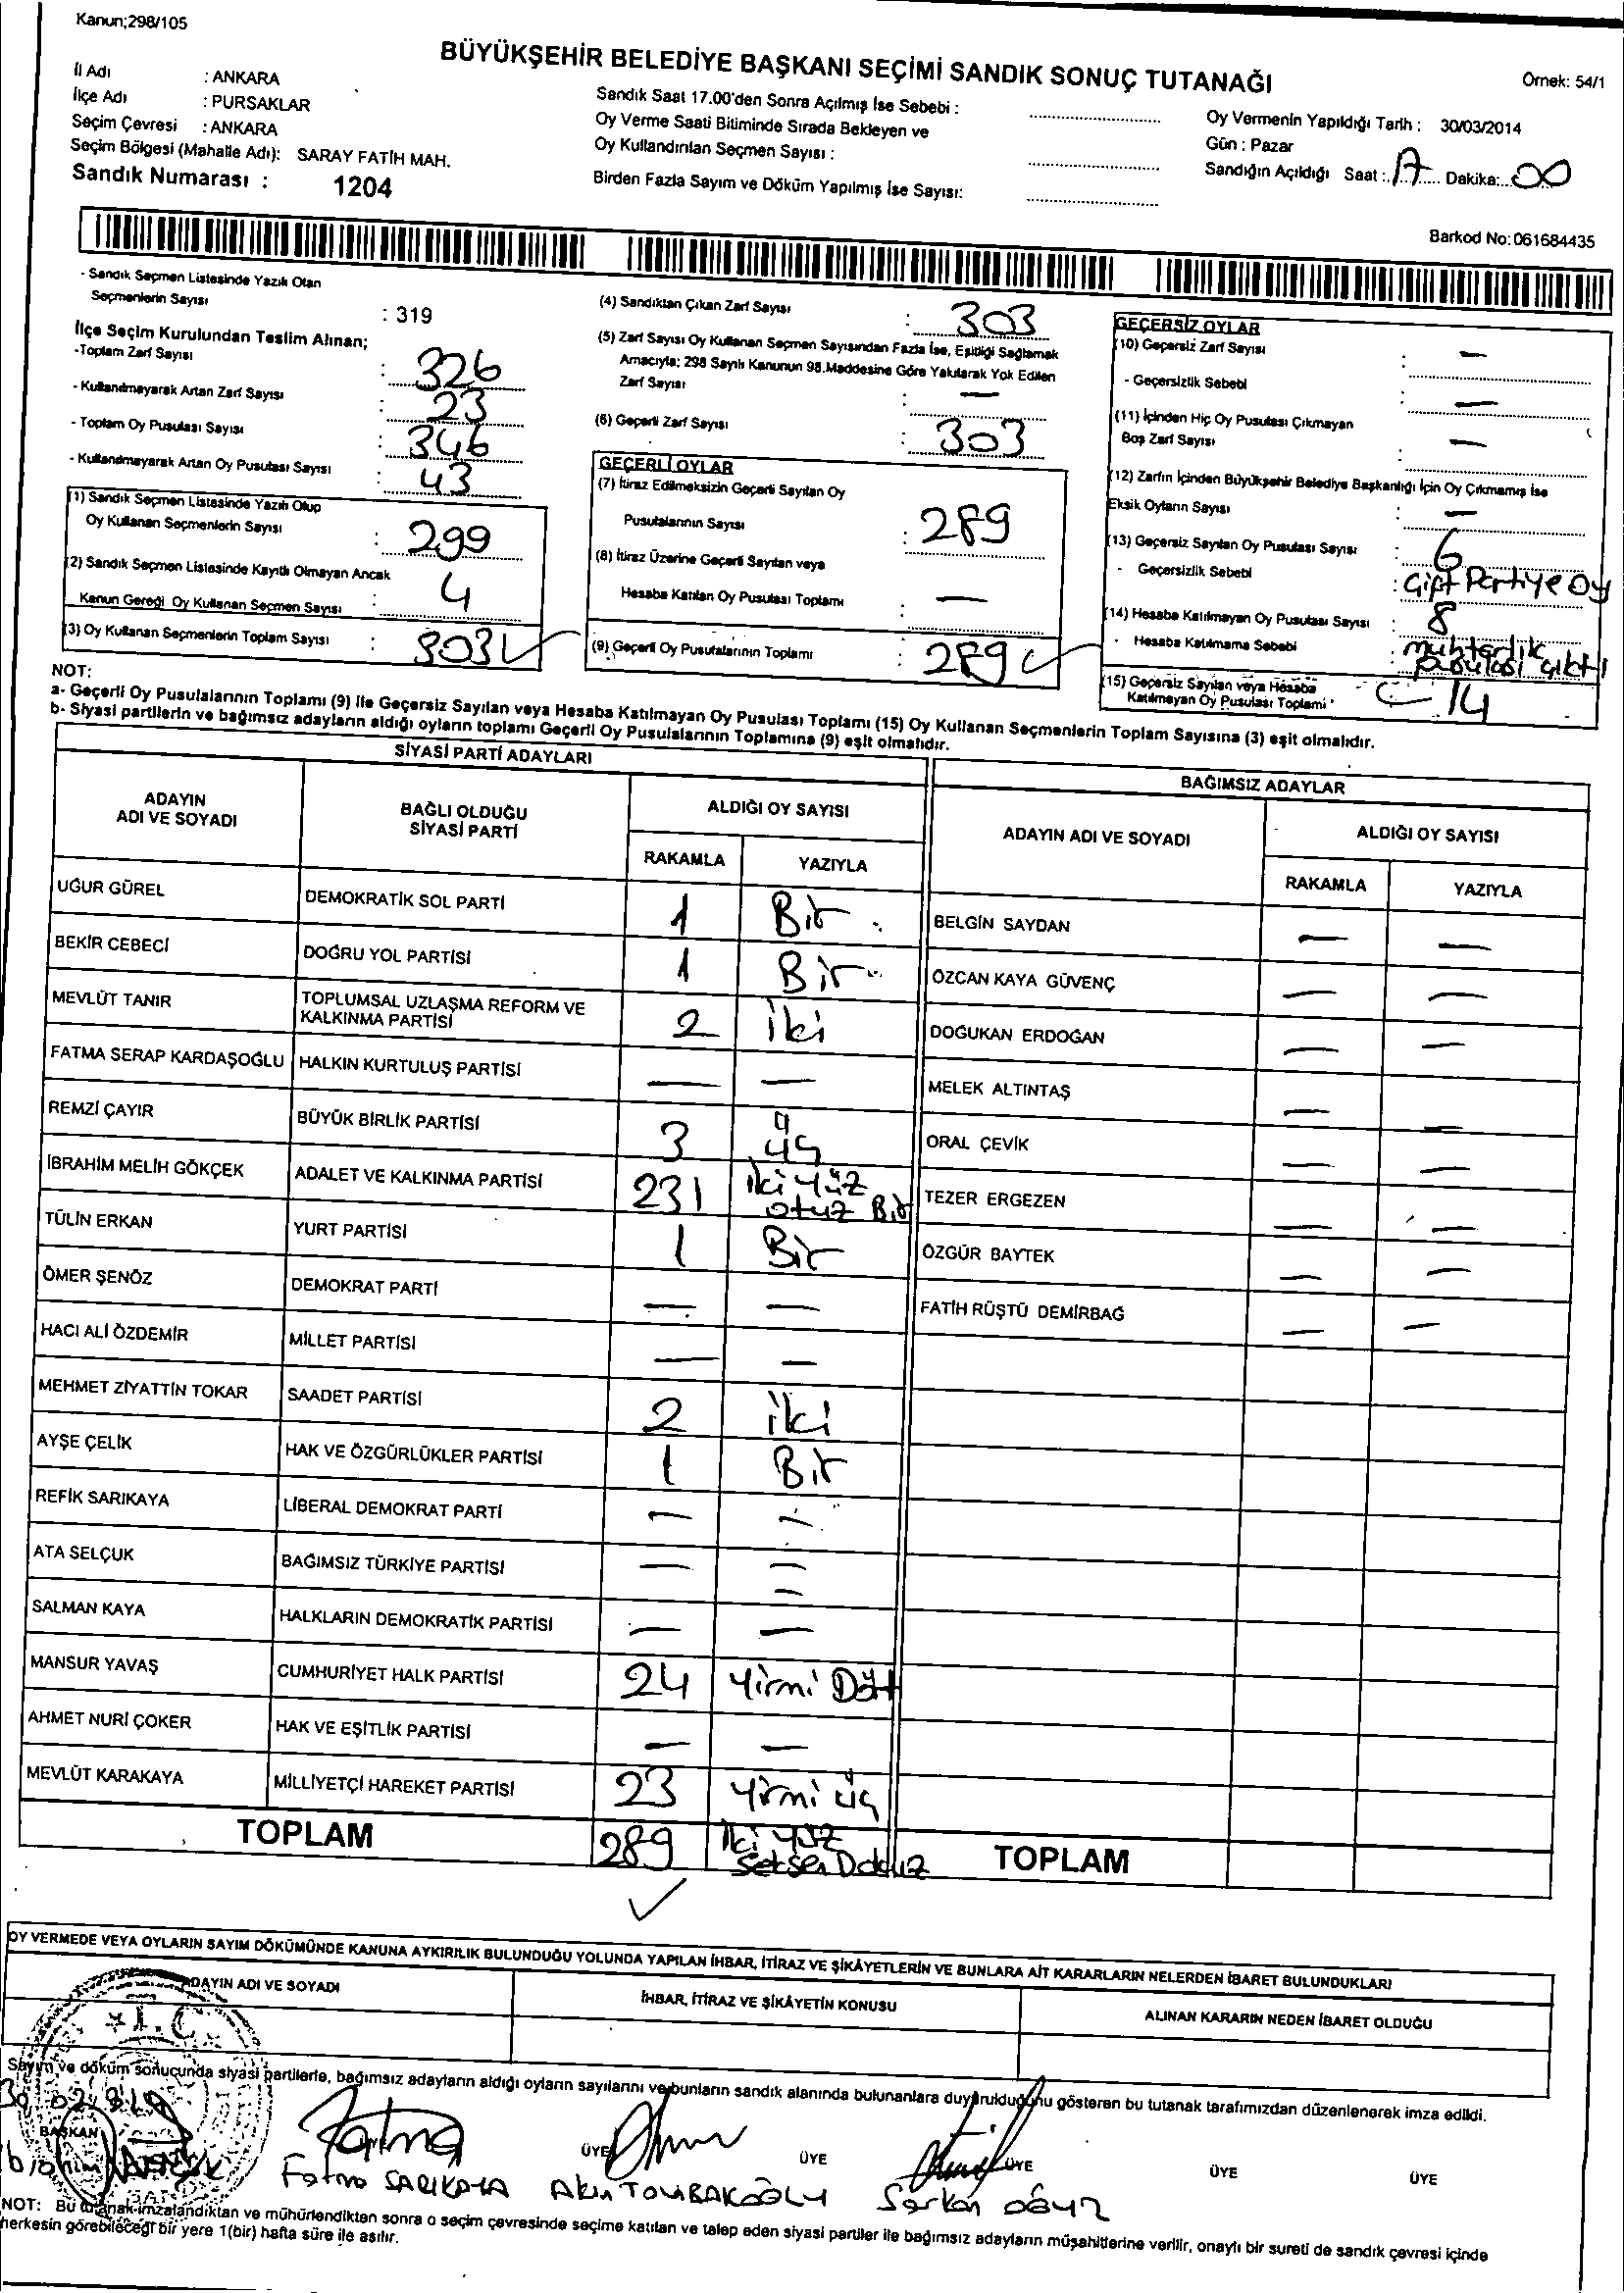 Kanun;298/105
BÜYÜKŞEHİR BELEDİYE BAŞKANI SEÇİMİ SANDIK SONUÇ TUTANAĞI
Örnek: 54/1
İl Adı : ANKARA
İlçe Adı : PURSAKLAR
Seçim Çevresi : ANKARA
Seçim Bölgesi (Mahalle Adı): SARAY FATİH MAH.
Sandık Numarası : 1204
Sandık Saat 17.00'den Sonra Açılmış İse Sebebi :
Oy Verme Saati Bitiminde Sırada Bekleyen ve
Oy Kullandırılan Seçmen Sayısı :
Birden Fazla Sayım ve Döküm Yapılmış İse Sayısı:
Oy Vermenin Yapıldığı Tarih : 30/03/2014
Gün : Pazar
Sandığın Açıldığı Saat : 17 Dakika: 00
Barkod No: 061684435
- Sandık Seçmen Listesinde Yazılı Olan
Seçmenlerin Sayısı : 319
İlçe Seçim Kurulundan Teslim Alınan;
-Toplam Zarf Sayısı : 326
- Kullanılmayarak Artan Zarf Sayısı : 23
- Toplam Oy Pusulası Sayısı : 346
- Kullanılmayarak Artan Oy Pusulası Sayısı : 43
(1) Sandık Seçmen Listesinde Yazılı Olup
Oy Kullanan Seçmenlerin Sayısı : 299
(2) Sandık Seçmen Listesinde Kayıtlı Olmayan Ancak
Kanun Gereği Oy Kullanan Seçmen Sayısı : 4
(3) Oy Kullanan Seçmenlerin Toplam Sayısı : 303
(4) Sandıktan Çıkan Zarf Sayısı : 303
(5) Zarf Sayısı Oy Kullanan Seçmen Sayısından Fazla İse, Eşitliği Sağlamak
Amacıyla; 298 Sayılı Kanunun 98.Maddesine Göre Yakılarak Yok Edilen
Zarf Sayısı : —
(6) Geçerli Zarf Sayısı : 303
GEÇERLİ OYLAR
(7) İtiraz Edilmeksizin Geçerli Sayılan Oy
Pusulalarının Sayısı : 289
(8) İtiraz Üzerine Geçerli Sayılan veya
Hesaba Katılan Oy Pusulası Toplamı : —
(9) Geçerli Oy Pusulalarının Toplamı : 289
GEÇERSİZ OYLAR
(10) Geçersiz Zarf Sayısı : —
- Geçersizlik Sebebi : —
(11) İçinden Hiç Oy Pusulası Çıkmayan
Boş Zarf Sayısı : —
(12) Zarfın İçinden Büyükşehir Belediye Başkanlığı İçin Oy Çıkmamış İse
Eksik Oyların Sayısı : —
(13) Geçersiz Sayılan Oy Pusulası Sayısı : 6
- Geçersizlik Sebebi : Çift Partiye Oy
(14) Hesaba Katılmayan Oy Pusulası Sayısı : 8
- Hesaba Katılmama Sebebi : muhtarlık
pusulası çıktı
(15) Geçersiz Sayılan veya Hesaba
Katılmayan Oy Pusulası Toplamı : 14
NOT:
a- Geçerli Oy Pusulalarının Toplamı (9) ile Geçersiz Sayılan veya Hesaba Katılmayan Oy Pusulası Toplamı (15) Oy Kullanan Seçmenlerin Toplam Sayısına (3) eşit olmalıdır.
b- Siyasi partilerin ve bağımsız adayların aldığı oyların toplamı Geçerli Oy Pusulalarının Toplamına (9) eşit olmalıdır.
SİYASİ PARTİ ADAYLARI
ADAYIN ADI VE SOYADI
BAĞLI OLDUĞU SİYASİ PARTİ
ALDIĞI OY SAYISI
RAKAMLA YAZIYLA
UĞUR GÜREL DEMOKRATİK SOL PARTİ 1 Bir
BEKİR CEBECİ DOĞRU YOL PARTİSİ 1 Bir
MEVLÜT TANIR TOPLUMSAL UZLAŞMA REFORM VE KALKINMA PARTİSİ 2 iki
FATMA SERAP KARDAŞOĞLU HALKIN KURTULUŞ PARTİSİ — —
REMZİ ÇAYIR BÜYÜK BİRLİK PARTİSİ 3 üç
İBRAHİM MELİH GÖKÇEK ADALET VE KALKINMA PARTİSİ 231 iki yüz otuz Bir
TÜLİN ERKAN YURT PARTİSİ 1 Bir
ÖMER ŞENÖZ DEMOKRAT PARTİ — —
HACI ALİ ÖZDEMİR MİLLET PARTİSİ — —
MEHMET ZİYATTİN TOKAR SAADET PARTİSİ 2 iki
AYŞE ÇELİK HAK VE ÖZGÜRLÜKLER PARTİSİ 1 Bir
REFİK SARIKAYA LİBERAL DEMOKRAT PARTİ — —
ATA SELÇUK BAĞIMSIZ TÜRKİYE PARTİSİ — —
SALMAN KAYA HALKLARIN DEMOKRATİK PARTİSİ — —
MANSUR YAVAŞ CUMHURİYET HALK PARTİSİ 24 Yirmi Dört
AHMET NURİ ÇOKER HAK VE EŞİTLİK PARTİSİ — —
MEVLÜT KARAKAYA MİLLİYETÇİ HAREKET PARTİSİ 23 Yirmi üç
TOPLAM 289 İki yüz Seksen Dokuz
BAĞIMSIZ ADAYLAR
ADAYIN ADI VE SOYADI
ALDIĞI OY SAYISI
RAKAMLA YAZIYLA
BELGİN SAYDAN — —
ÖZCAN KAYA GÜVENÇ — —
DOĞUKAN ERDOĞAN — —
MELEK ALTINTAŞ — —
ORAL ÇEVİK — —
TEZER ERGEZEN — —
ÖZGÜR BAYTEK — —
FATİH RÜŞTÜ DEMİRBAĞ — —
TOPLAM
OY VERMEDE VEYA OYLARIN SAYIM DÖKÜMÜNDE KANUNA AYKIRILIK BULUNDUĞU YOLUNDA YAPILAN İHBAR, İTİRAZ VE ŞİKÂYETLERİN VE BUNLARA AİT KARARLARIN NELERDEN İBARET BULUNDUKLARI
ADAYIN ADI VE SOYADI
İHBAR, İTİRAZ VE ŞİKÂYETİN KONUSU
ALINAN KARARIN NEDEN İBARET OLDUĞU
T.C.
Sayım ve döküm sonucunda siyasi partilerle, bağımsız adayların aldığı oyların sayılarını ve bunların sandık alanında bulunanlara duyurulduğunu gösteren bu tutanak tarafımızdan düzenlenerek imza edildi.
BAŞKAN ÜYE ÜYE ÜYE ÜYE ÜYE
Fatma
Fatma SARIKAYA
Serkan OĞUZ
NOT: Bu tutanak imzalandıktan ve mühürlendikten sonra o seçim çevresinde seçime katılan ve talep eden siyasi partiler ile bağımsız adayların müşahitlerine verilir, onaylı bir sureti de sandık çevresi içinde
herkesin görebileceği bir yere 1(bir) hafta süre ile asılır.